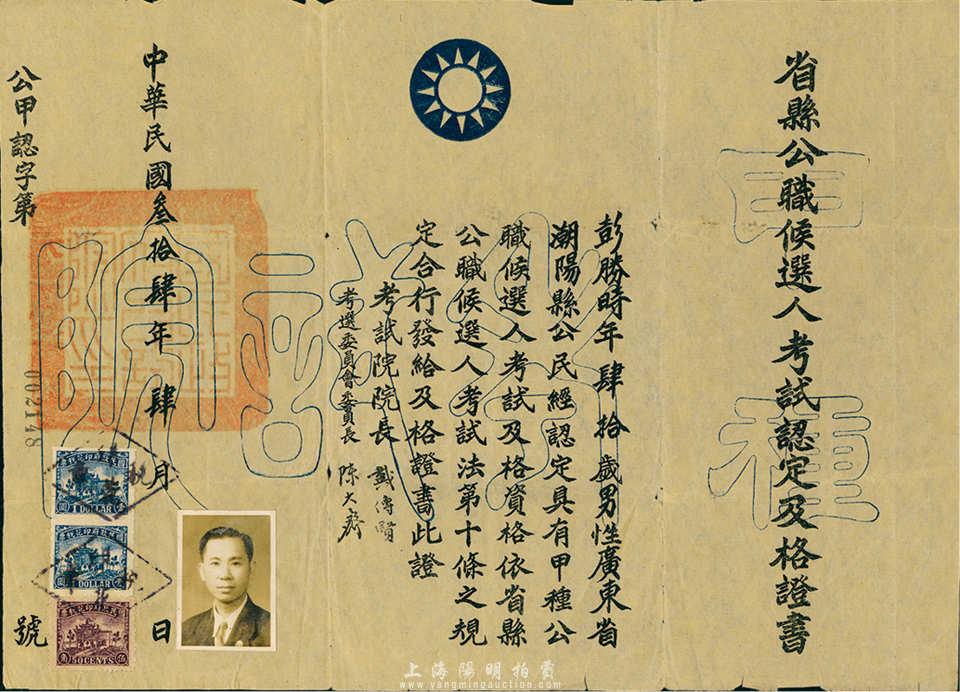 省縣公職候選人考試認定及格證書
甲種
彭勝時年肆拾歲男性廣東省
潮陽縣公民經認定具有甲種公
職候選人考試及格資格依省縣
公職候選人考試法第十條之規
定合行發給及格證書此證
考試院院長 戴傳賢
考選委員會委員長 陳大齊
中華民國叁拾肆年肆月日
公甲認字第
002148
號
國民政府印花稅票
1 DOLLAR
國民政府印花稅票
1 DOLLAR
國民政府印花稅票
50 CENTS
上海陽明拍賣
www.yangmingauction.com